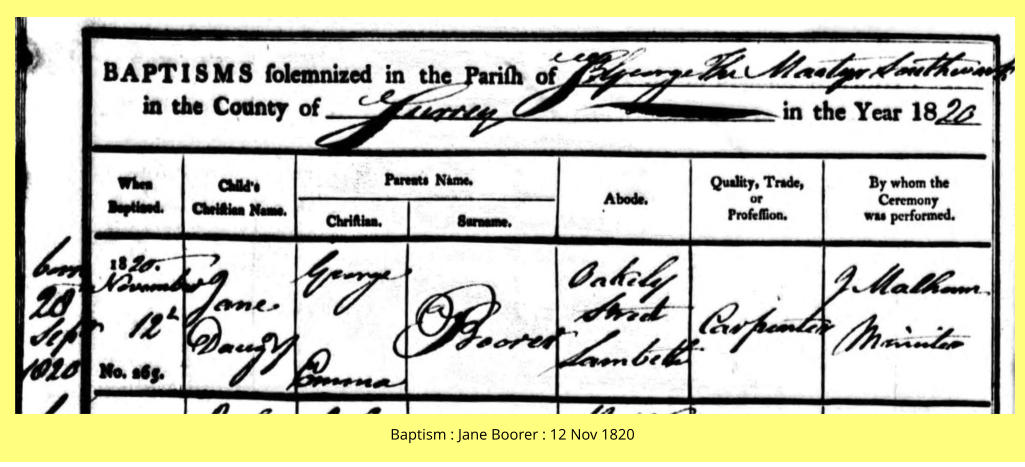 BAPTISMS solemnized in the Parish of St George The Martyr Southwark
in the County of Surrey in the Year 1820
When Baptized.
Child's Christian Name.
Parents Name.
Christian.
Surname.
Abode.
Quality, Trade, or Profession.
By whom the Ceremony was performed.
born
28
Sepr
1820
1820.
November
12th
No. 265.
Jane
Daugr
George
Emma
Boorer
Oakely
Street
Lambeth
Carpenter
J Malham
Minister
Baptism : Jane Boorer : 12 Nov 1820